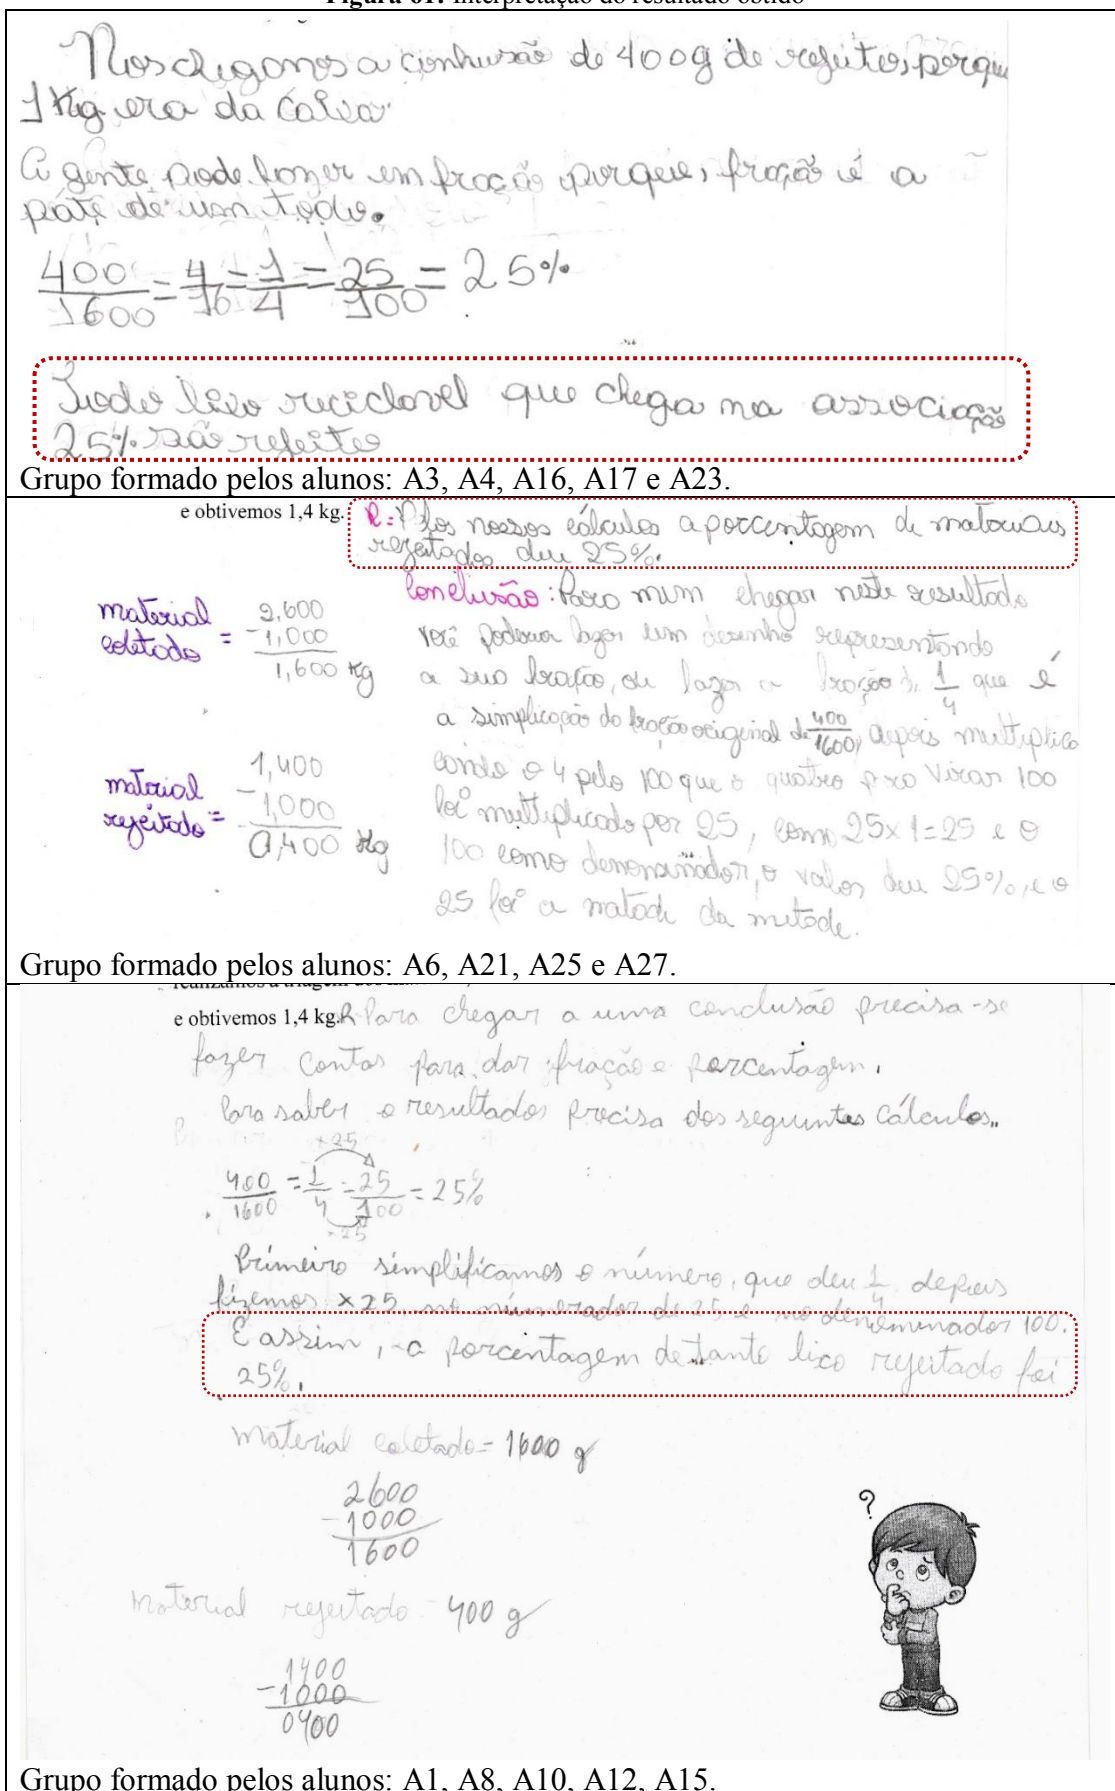 Figura 61: Interpretação do resultado obtido
Nos chegamos a conhusão de 400g de rejeitos, porque
1 Kg era da caixa.
A gente pode fazer em fração porque, fração é a
pate de um todo.
400/1600 = 4/16 = 1/4 = 25/100 = 25%
Todo lixo reciclavel que chega na associação
25% são rejeitos
Grupo formado pelos alunos: A3, A4, A16, A17 e A23.
e obtivemos 1,4 kg. R: Pelos nossos cálculos a porcentagem de materiais
rejeitados deu 25%.
Conclusão: Para mim chegar neste resultado
você poderia fazer um desenho representando
a sua fração, ou fazer a fração de 1/4 que é
a simplicação da fração original de 400/1600, depois multiplica
cando o 4 pelo 100 que o quatro pra virar 100
foi multiplicado por 25, como 25x1=25 e o
100 como denominador, o valor deu 25%, e o
25 foi a matade da metade.
material
coletado =
2,600
-1,000
1,600 Kg
material
rejeitado =
1,400
-1,000
0,400 Kg
Grupo formado pelos alunos: A6, A21, A25 e A27.
e obtivemos 1,4 kg. R Para chegar a uma conclusão precisa-se
fazer contas para dar fração e porcentagem.
Para saber o resultados precisa dos seguintes cálculos..
x25
400/1600 = 1/4 = 25/100 = 25%
x25
Primeiro simplificamos o número, que deu 1/4 depois
fizemos x25 no númerador de 25 e no denôminador 100.
E assim, a porcentagem de tanto lixo rejeitado foi
25%.
Material coletado = 1600 g
2600
-1000
1600
Material rejeitado - 400 g
1400
-1000
0400
?
Grupo formado pelos alunos: A1, A8, A10, A12, A15.